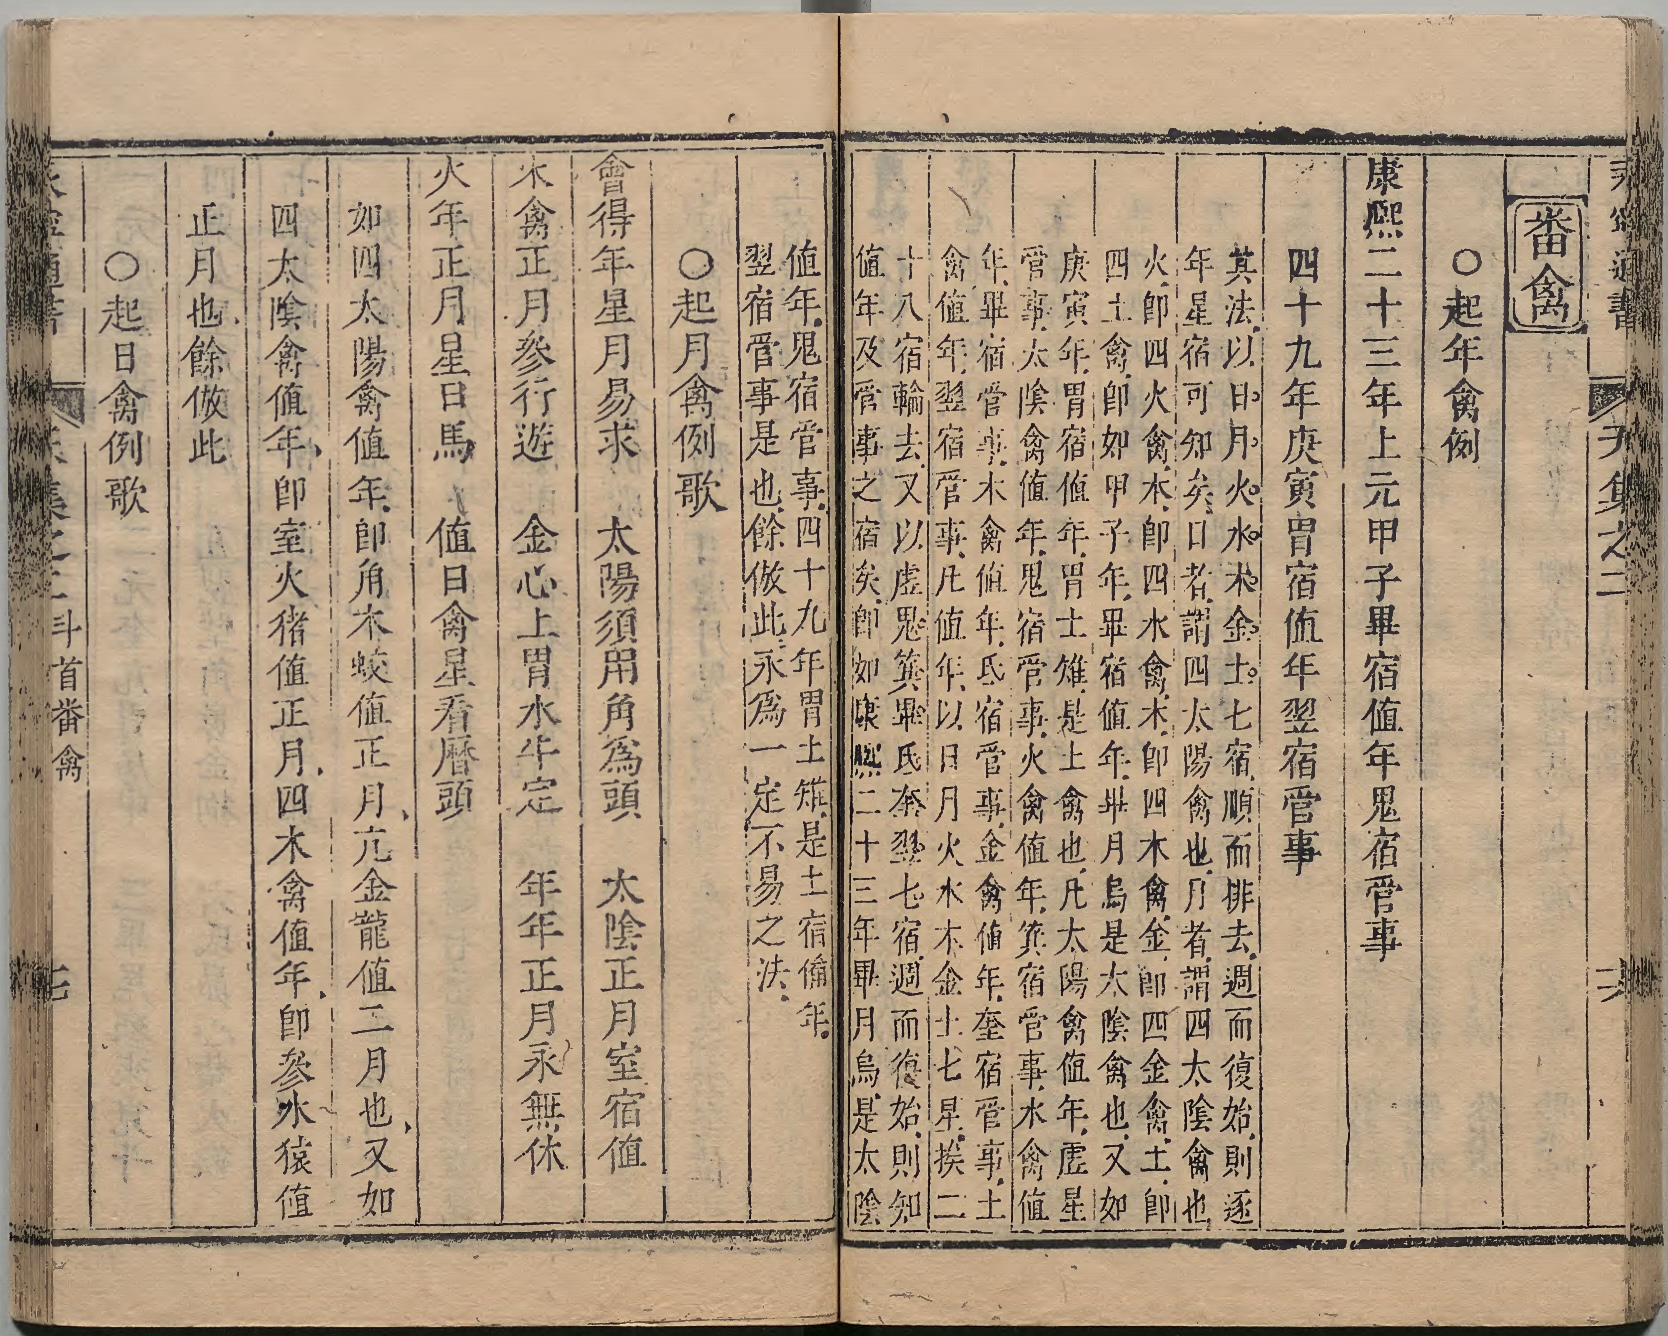 番禽
○起年禽例
康熙二十三年上元甲子畢宿值年鬼宿管事
四十九年庚寅胃宿值年翌宿管事
其法以日月火水木金土七宿順而排去週而復始則逐
年星宿可知矣日者謂四太陽禽也月者謂四太陰禽也
火即四火禽水即四水禽木即四木禽金即四金禽土即
四土禽即如甲子年畢宿值年畢月烏是太陰禽也又如
庚寅年胃宿值年胃土雉是土禽也凡太陽禽值年虛星
管事太陰禽值年鬼宿管事火禽值年箕宿管事水禽值
年畢宿管事木禽值年氐宿管事金禽值年奎宿管事土
禽值年翌宿管事凡值年以日月火水木金土七星挨二
十八宿輪去又以虛鬼箕畢氐奎翌七宿週而復始則知
值年及管事之宿矣即如康熙二十三年畢月烏是太陰
值年鬼宿管事四十九年胃土雉是土宿值年
翌宿管事是也餘倣此永為一定不易之法
○起月禽例歌
會得年星月易求 太陽須用角為頭 太陰正月室宿值
木禽正月參行遊 金心上胃水牛定 年年正月永無休
火年正月星日馬 值日禽星看曆頭
如四太陽禽值年即角木蛟值正月亢金龍值二月也又如
四太陰禽值年即室火猪值正月四木禽值年即參水猿值
正月也餘倣此
○起日禽例歌
斗首番禽